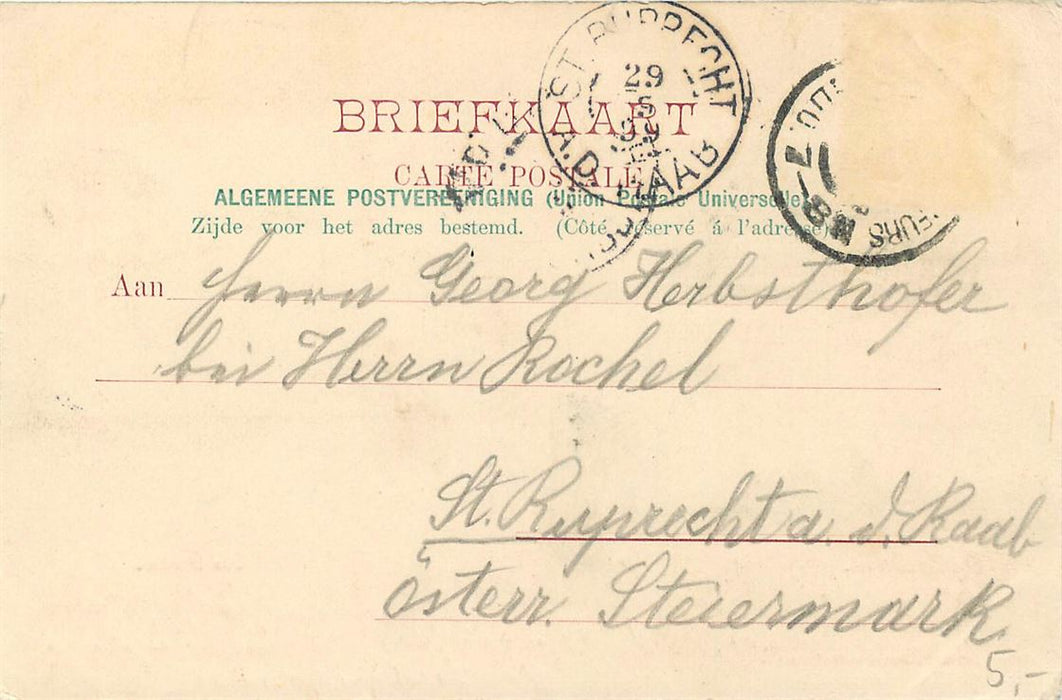 BRIEFKAART
CARTE POSTALE
ALGEMEENE POSTVEREENIGING (Union Postale Universelle)
Zijde voor het adres bestemd. (Côté réservé á l'adresse)
ST. RUPRECHT
29
5
99
A.D. RAAB
7-8N
Aan Herrn Georg Herbsthofer
bei Herrn Rochel
St. Ruprecht a. d. Raab
österr. Steiermark
5,-